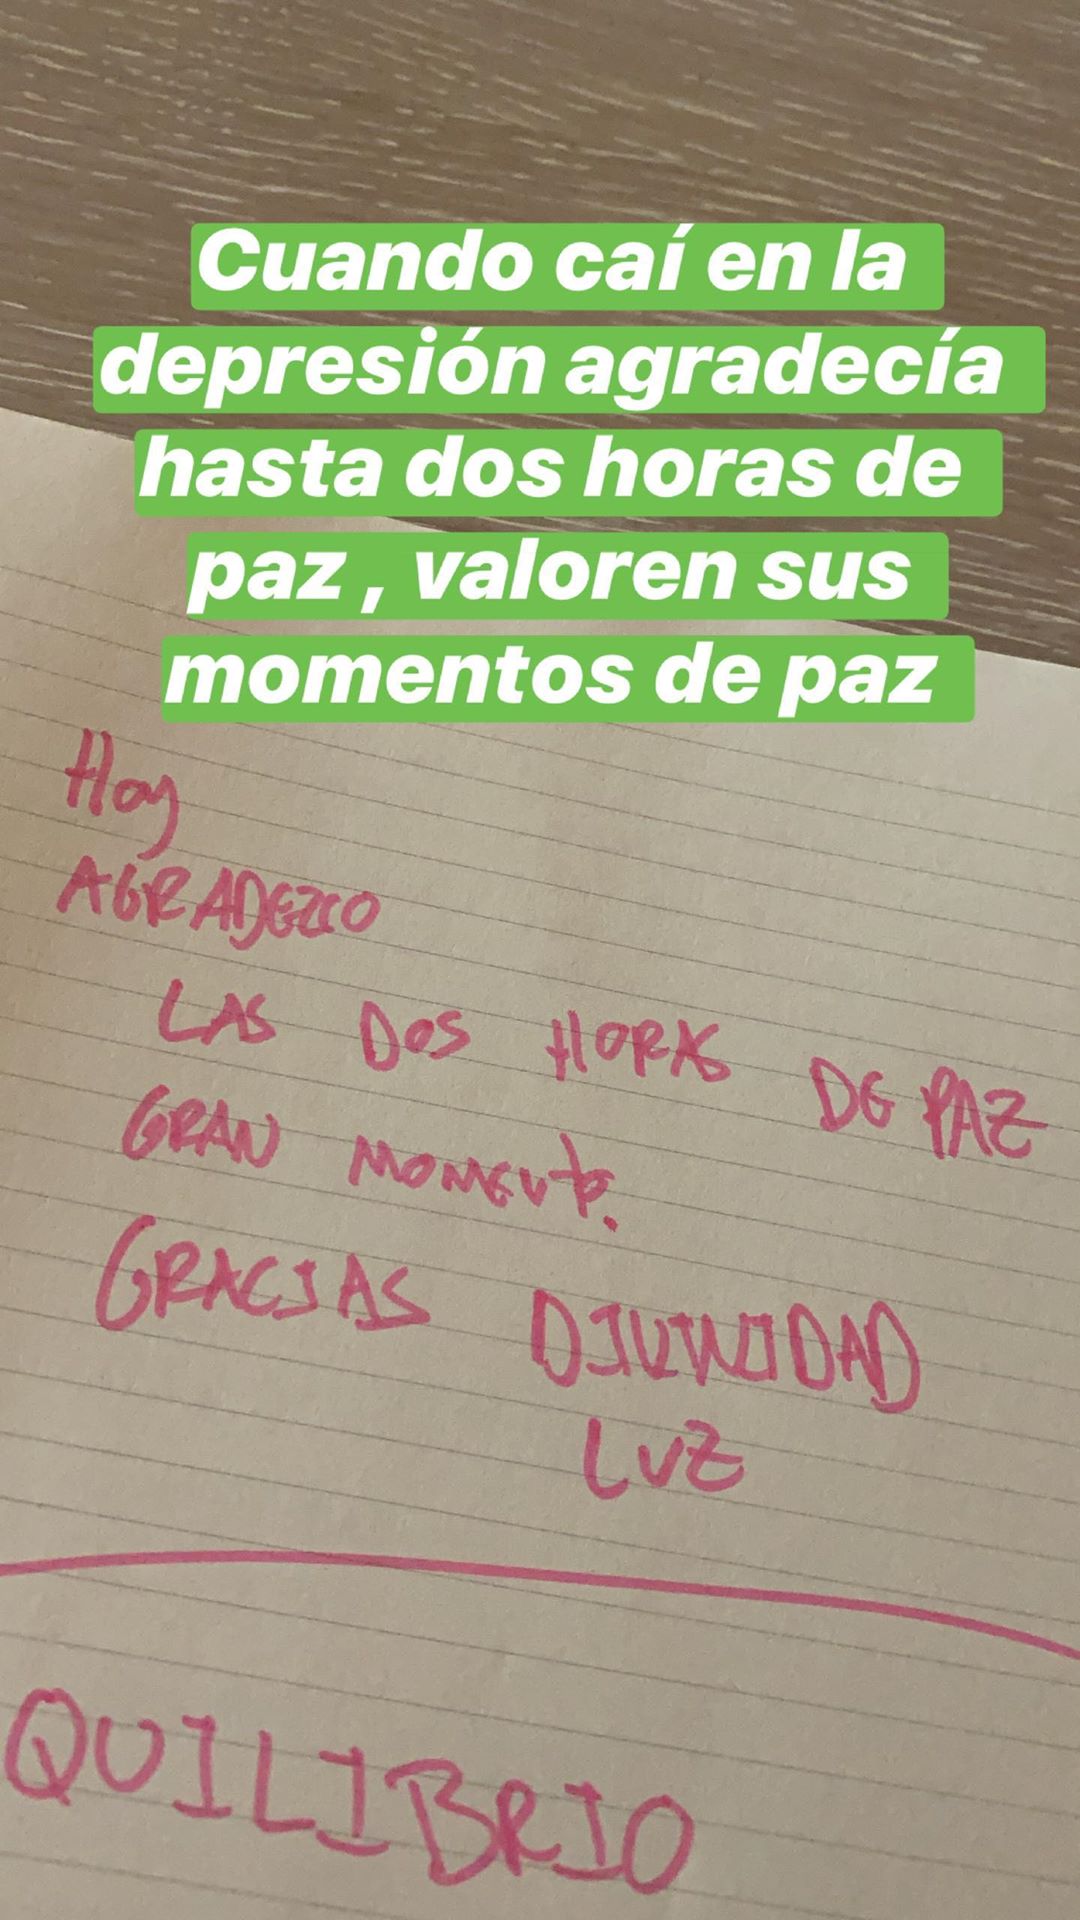 Cuando caí en la
depresión agradecía
hasta dos horas de
paz , valoren sus
momentos de paz
Hoy
AGRADEZCO
LAS DOS HORAS DE PAZ
GRAN MOMENTO.
GRACIAS DIVINIDAD
LUZ
QUILIBRIO